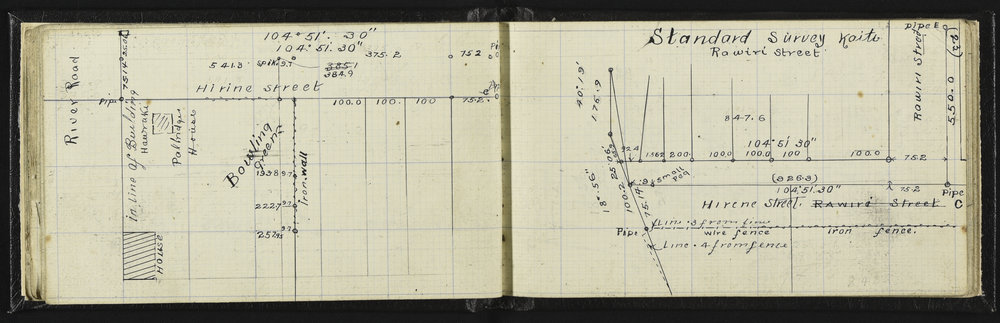 104° 51'. 30"
104° 51. 30"
375.2
75.2
541.3
spike 9.7
3851
384.9
Hirine Street
Pipe
100.0 100. 100
75.2
C
River Road
in line of Building
Hawraki
House
Bowling
green
iron wall
1938 9.7
2227 9.7
HOUSE
Standard Survey Kaiti
Rawiri Street
pipe E
(23)
Rawiri Street
550.0
40°. 9'
176.9
847.6
104° 51' 30"
92.4
1362 200. 100.0 100.0 100 100.0
75.2
25°06'
18°.56"
100.2
75.14
.9 small peg
(826.3)
104°51.30"
75.2
Pipe
C
Hirene Street. Rawiri Street
Line .3 from line
Pipe
wire fence iron fence.
Line .4 from fence